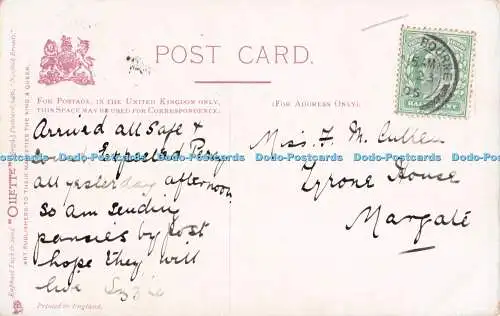 POST CARD.
FOR POSTAGE IN THE UNITED KINGDOM ONLY,
THIS SPACE MAY BE USED FOR CORRESPONDENCE.
(FOR ADDRESS ONLY).
Arrived all Safe &
Expected Percy
all yesterday afternoon
So am sending
pansies by post
hope they will
live Lizzie
Miss F. M. Cullen
Tyrone House
Margate
"OILETTE"
ART PUBLISHERS TO THEIR MAJESTIES THE KING & QUEEN.
Printed in England.
HALFPENNY
Dodo-Postcards Dodo-Postcards Dodo-Postcards Dodo-Postcards Dodo-Postcards Dodo-Postcards